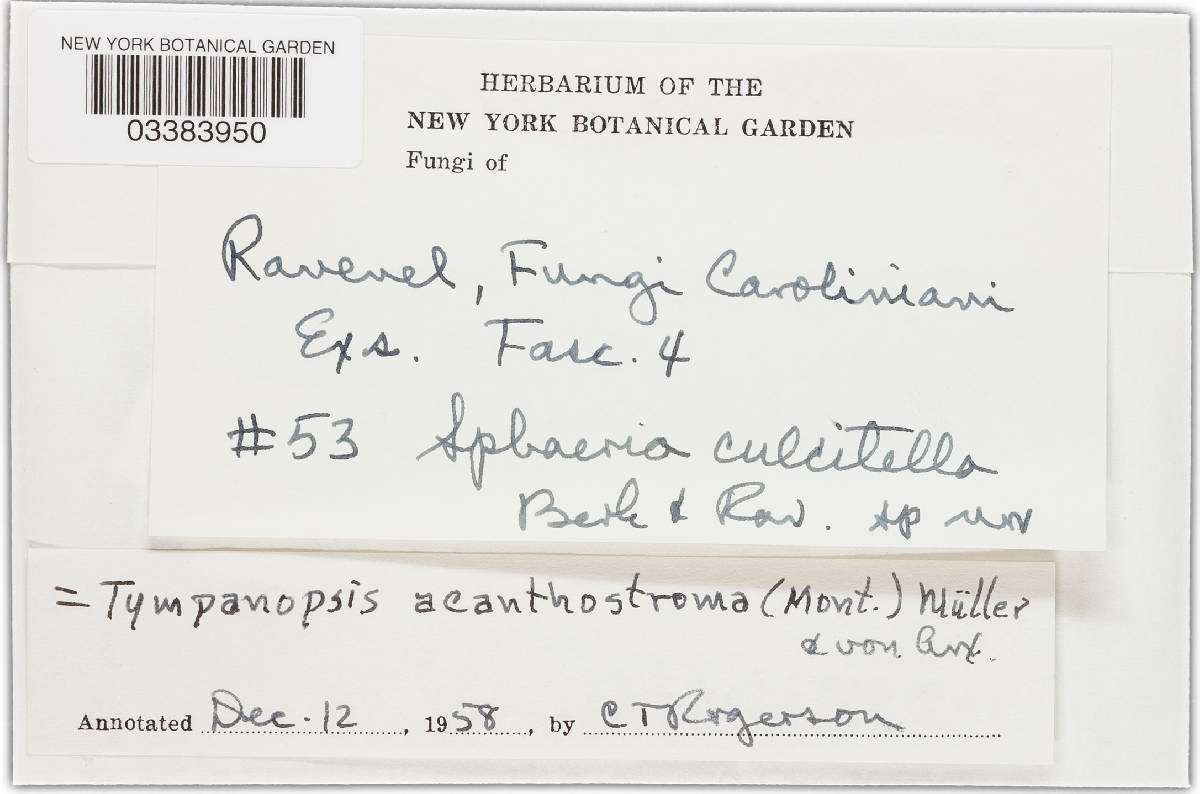 NEW YORK BOTANICAL GARDEN
03383950
HERBARIUM OF THE
NEW YORK BOTANICAL GARDEN
Fungi of
Ravenel, Fungi Caroliniani
Exs. Fasc. 4
#53 Sphaeria culcitella
Berk & Rav. sp nov
= Tympanopsis acanthostroma (Mont.) Müller
& von Arx.
Annotated Dec. 12, 1958, by CT Rogerson